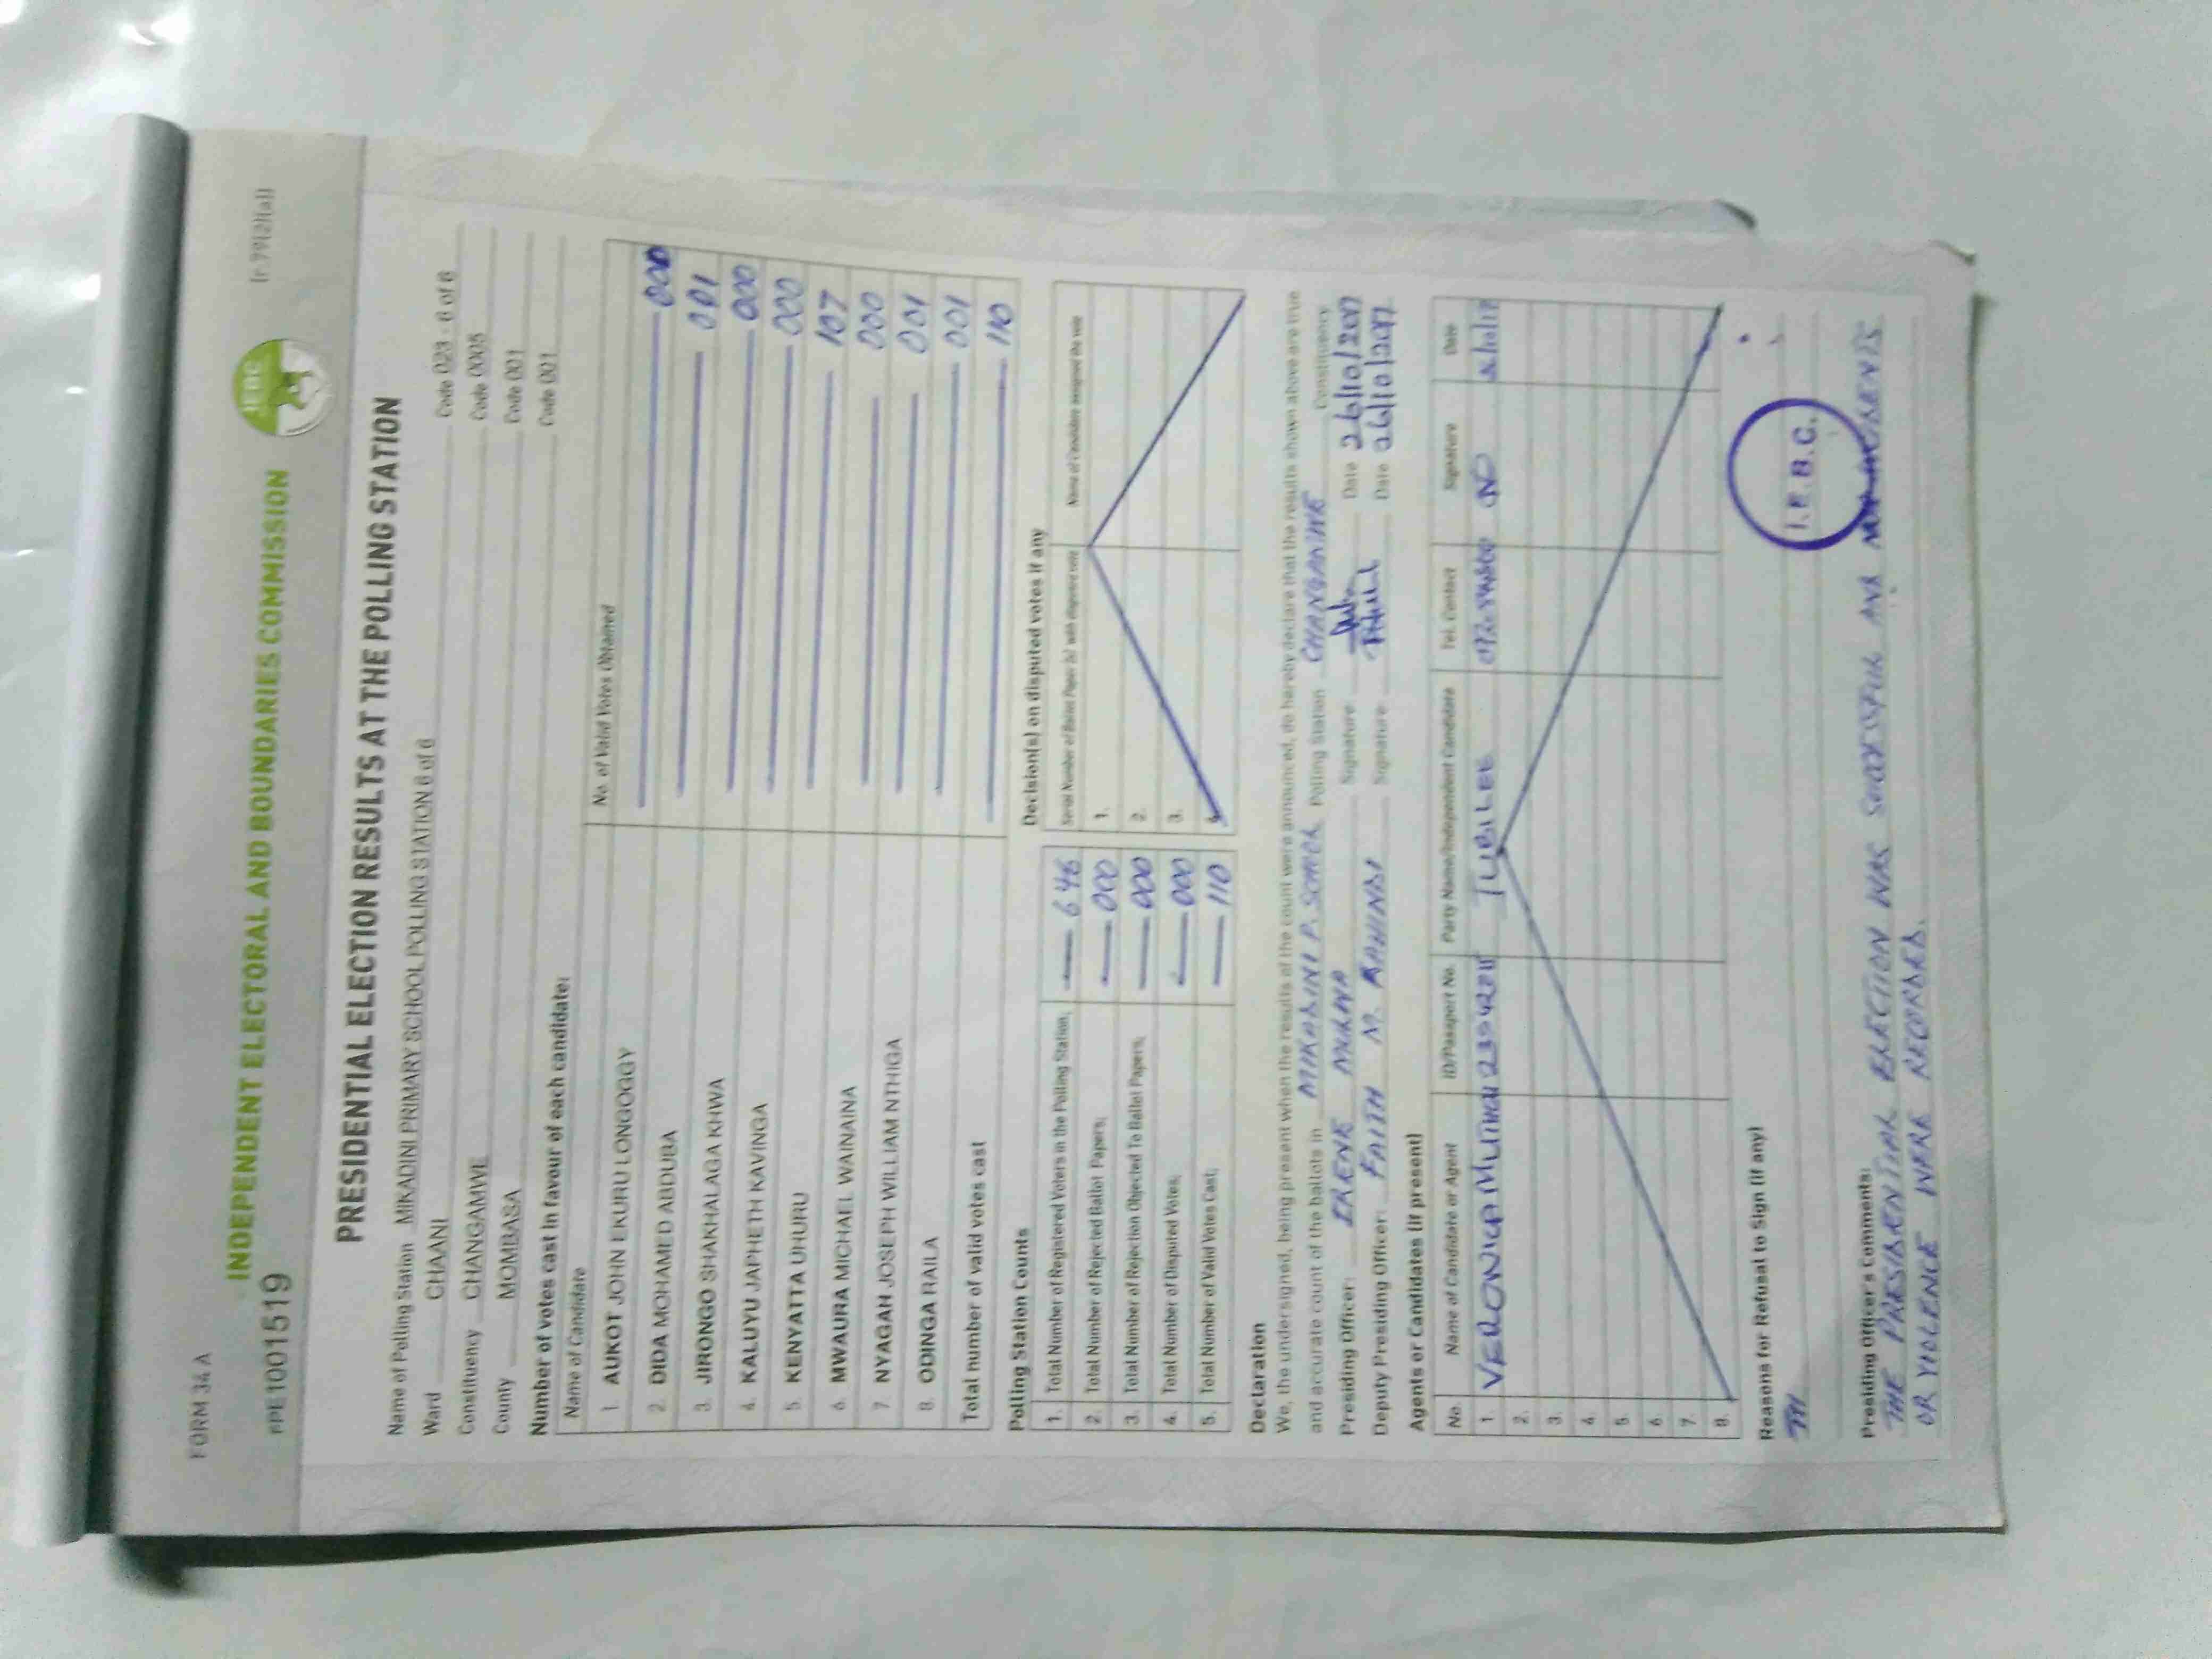 FORM 34 A
[r 79(2)(a)]
INDEPENDENT ELECTORAL AND BOUNDARIES COMMISSION
IEBC
#PE1001519
PRESIDENTIAL ELECTION RESULTS AT THE POLLING STATION
Name of Polling Station MIKADINI PRIMARY SCHOOL POLLING STATION 6 of 6 Code 023 - 6 of 6
Ward CHAANI Code 0005
Constituency CHANGAMWE Code 001
County MOMBASA Code 001
Number of votes cast in favour of each candidate:
Name of Candidate No. of Valid Votes Obtained
1. AUKOT JOHN EKURU LONGOGGY 000
2. DIDA MOHAMED ABDUBA 001
3. JIRONGO SHAKHALAGA KHWA 000
4. KALUYU JAPHETH KAVINGA 000
5. KENYATTA UHURU 107
6. MWAURA MICHAEL WAINAINA 000
7. NYAGAH JOSEPH WILLIAM NTHIGA 001
8. ODINGA RAILA 001
Total number of valid votes cast 110
Polling Station Counts
1. Total Number of Registered Voters in the Polling Station; 646
2. Total Number of Rejected Ballot Papers; 000
3. Total Number of Rejection Objected To Ballot Papers; 000
4. Total Number of Disputed Votes; 000
5. Total Number of Valid Votes Cast; 110
Decision(s) on disputed votes if any
Serial Number of Ballot Paper (s) with disputed vote Name of Candidate assigned the vote
1.
2.
3.
4.
Declaration
We, the undersigned, being present when the results of the count were announced, do hereby declare that the results shown above are true
and accurate count of the ballots in MIKADINI P. SCHOOL Polling Station CHANGAMWE Constituency
Presiding Officer: IRENE Signature Date 26/10/2017
Deputy Presiding Officer: FAITH M. KAHINDI Signature Date 26/10/2017
Agents or Candidates (if present)
No. Name of Candidate or Agent ID/Passport No. Party Name/Independent Candidate Tel. Contact Signature Date
1. VERONICA JUBILEE
2.
3.
4.
5.
6.
7.
8.
Reasons for Refusal to Sign (if any)
TH
I.E.B.C.
Presiding Officer's Comments:
THE PRESIDENTIAL ELECTION WAS SUCCESSFUL AND
OR VIOLENCE WERE RECORDED.